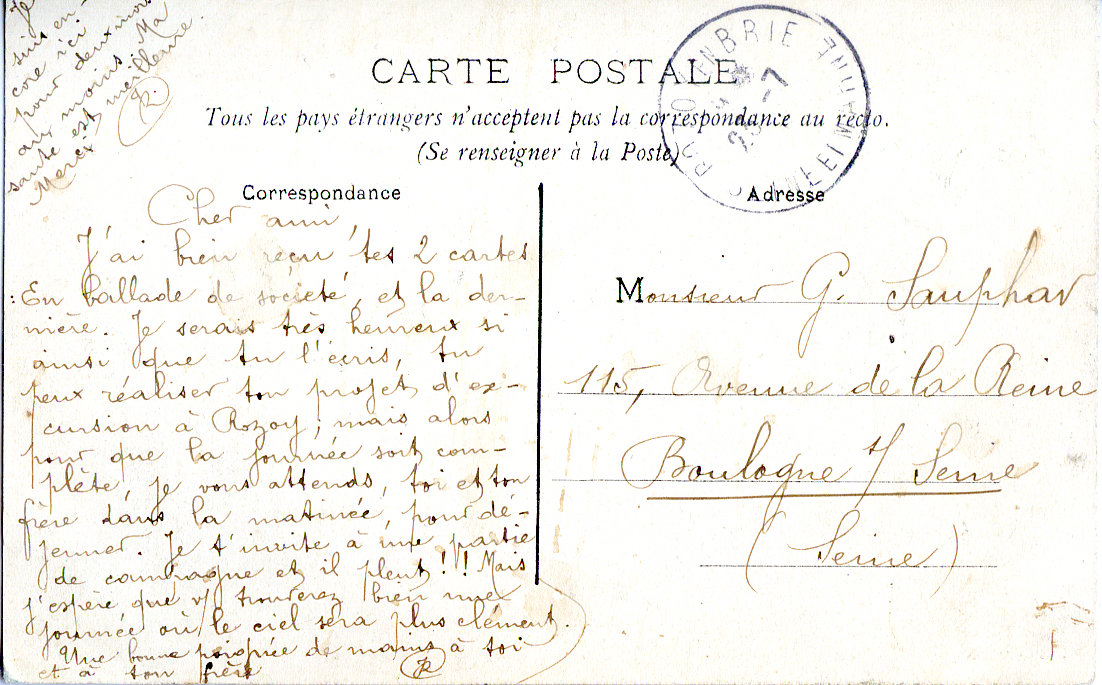 Je
suis en-
core ici
pour deux mois
au moins. Ma
santé est meilleure
Merci
R
CARTE POSTALE
Tous les pays étrangers n'acceptent pas la correspondance au recto.
(Se renseigner à la Poste)
ROZOY EN BRIE
SEINE ET MARNE
Correspondance
Cher ami,
J'ai bien reçu tes 2 cartes
: En ballade de société, et la der-
nière. Je serais très heureux si
ainsi que tu l'écris, tu
peux réaliser ton projet d'ex-
cursion à Rozoy; mais alors
pour que la journée soit com-
plète, je vous attends, toi et ton
frère dans la matinée, pour dé-
jeuner. Je t'invite à une partie
de campagne et il pleut!! Mais
j'espère que v/ trouverez bien une
journée où le ciel sera plus clément.
Une bonne poignée de mains à toi
et à ton frère
R
Adresse
Monsieur G. Sauphar
115, Avenue de la Reine
Boulogne s/ Seine
(Seine)